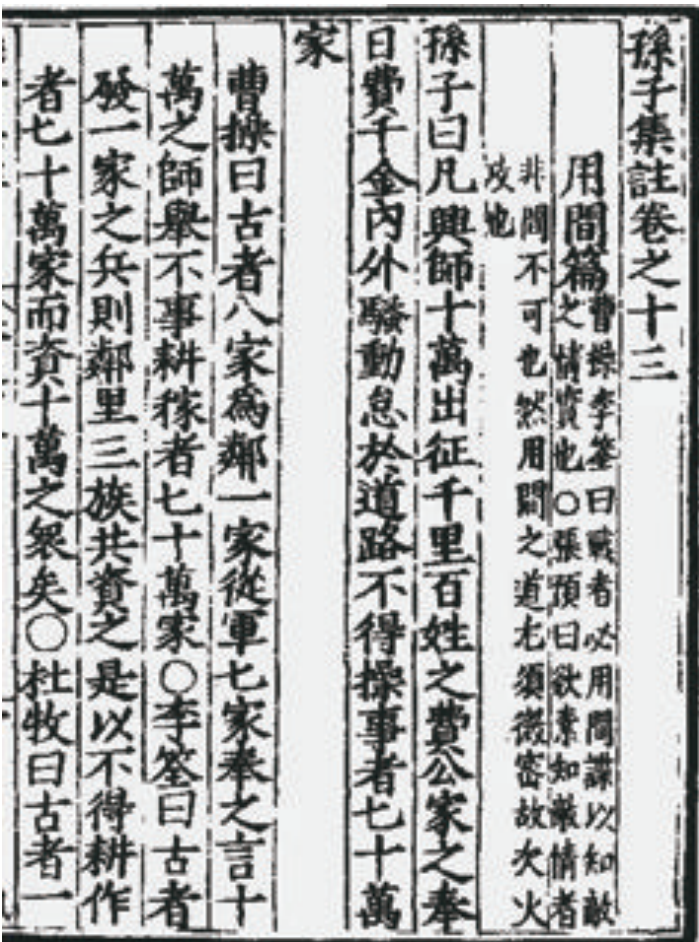 孫子集註卷之十三
用間篇
曹操李筌曰戰者必用間諜以知敵
之情實也○張預曰欲素知敵情者
非間不可也然用間之道尤須微密故次火
攻也
孫子曰凡興師十萬出征千里百姓之費公家之奉
日費千金內外騷動怠於道路不得操事者七十萬
家
曹操曰古者八家爲鄰一家從軍七家奉之言十
萬之師舉不事耕稼者七十萬家○李筌曰古者
發一家之兵則鄰里三族共資之是以不得耕作
者七十萬家而資十萬之衆矣○杜牧曰古者一